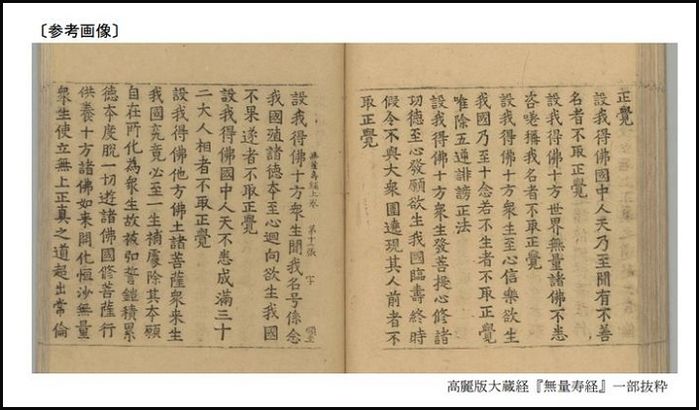 〔参考画像〕
正覺
設我得佛國中人天乃至聞有不善
名者不取正覺
設我得佛十方世界無量諸佛不悉
咨嗟稱我名者不取正覺
設我得佛十方衆生至心信樂欲生
我國乃至十念若不生者不取正覺
唯除五逆誹謗正法
設我得佛十方衆生發菩提心修諸
功德至心發願欲生我國臨壽終時
假令不與大衆圍遶現其人前者不
取正覺
無量壽經上卷 第 張 字
設我得佛十方衆生聞我名号係念
我國殖諸德本至心迴向欲生我國
不果遂者不取正覺
設我得佛國中人天不悉成滿三十
二大人相者不取正覺
設我得佛他方佛土諸菩薩衆來生
我國究竟必至一生補處除其本願
自在所化為衆生故被弘誓鎧積累
德本度脫一切遊諸佛國修菩薩行
供養十方諸佛如來開化恒沙無量
衆生使立無上正真之道超出常倫
高麗版大蔵経『無量寿経』一部抜粋